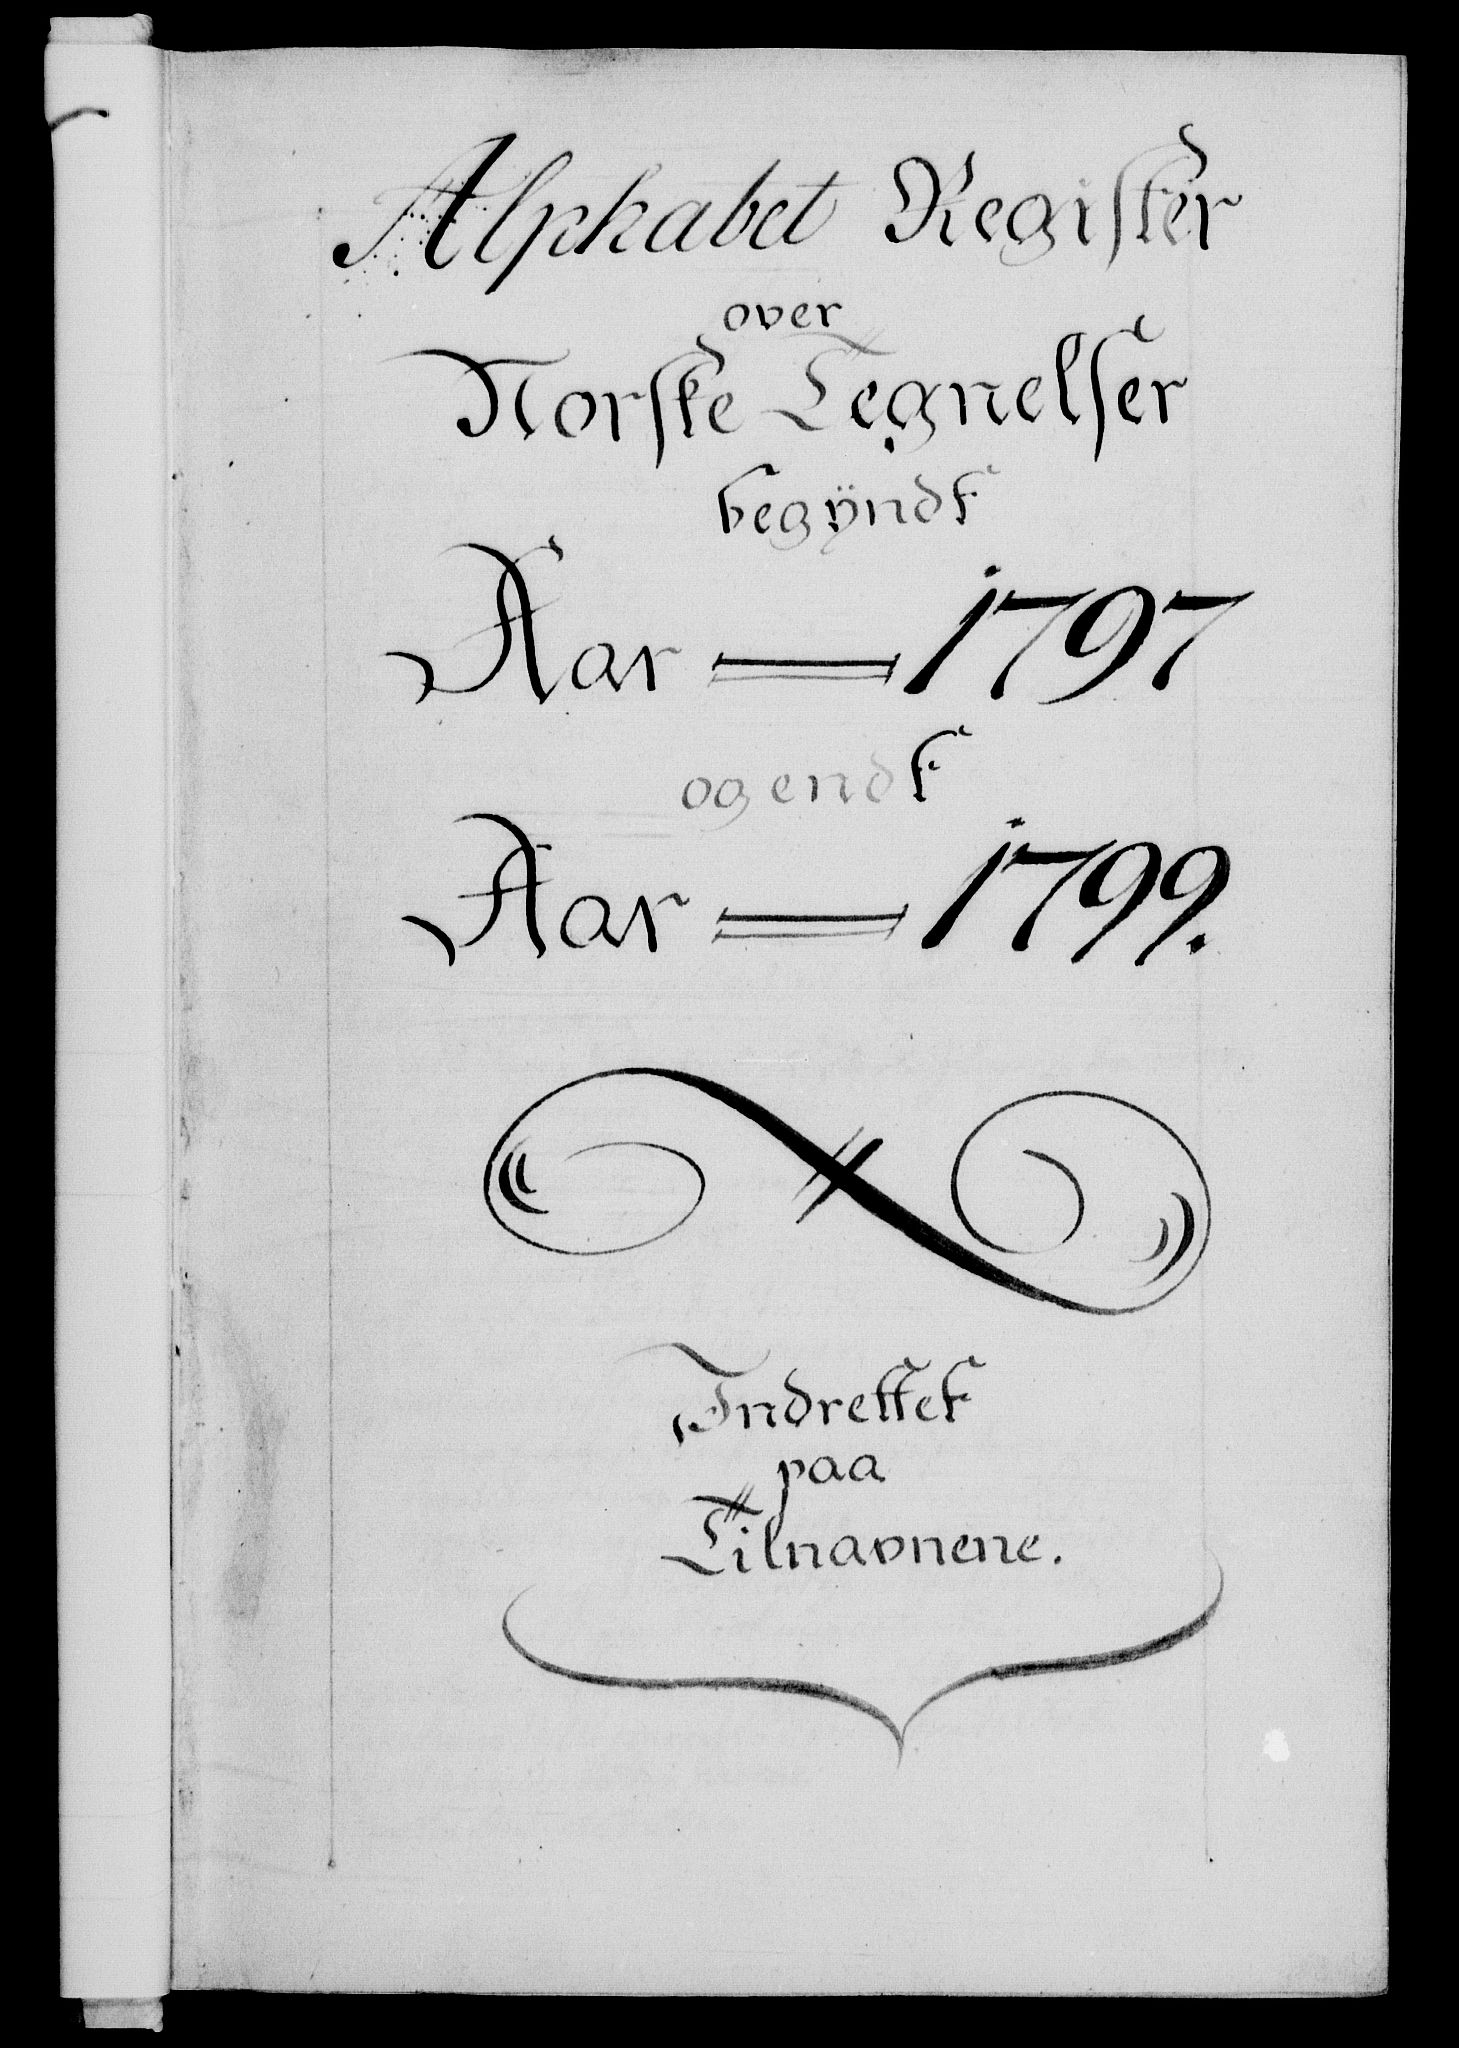 Alphabet Register
over
Norske Tegnelser
begÿndt
Aar 1797
og endt
Aar 1799.
Indrettet
paa
Tilnavnene.